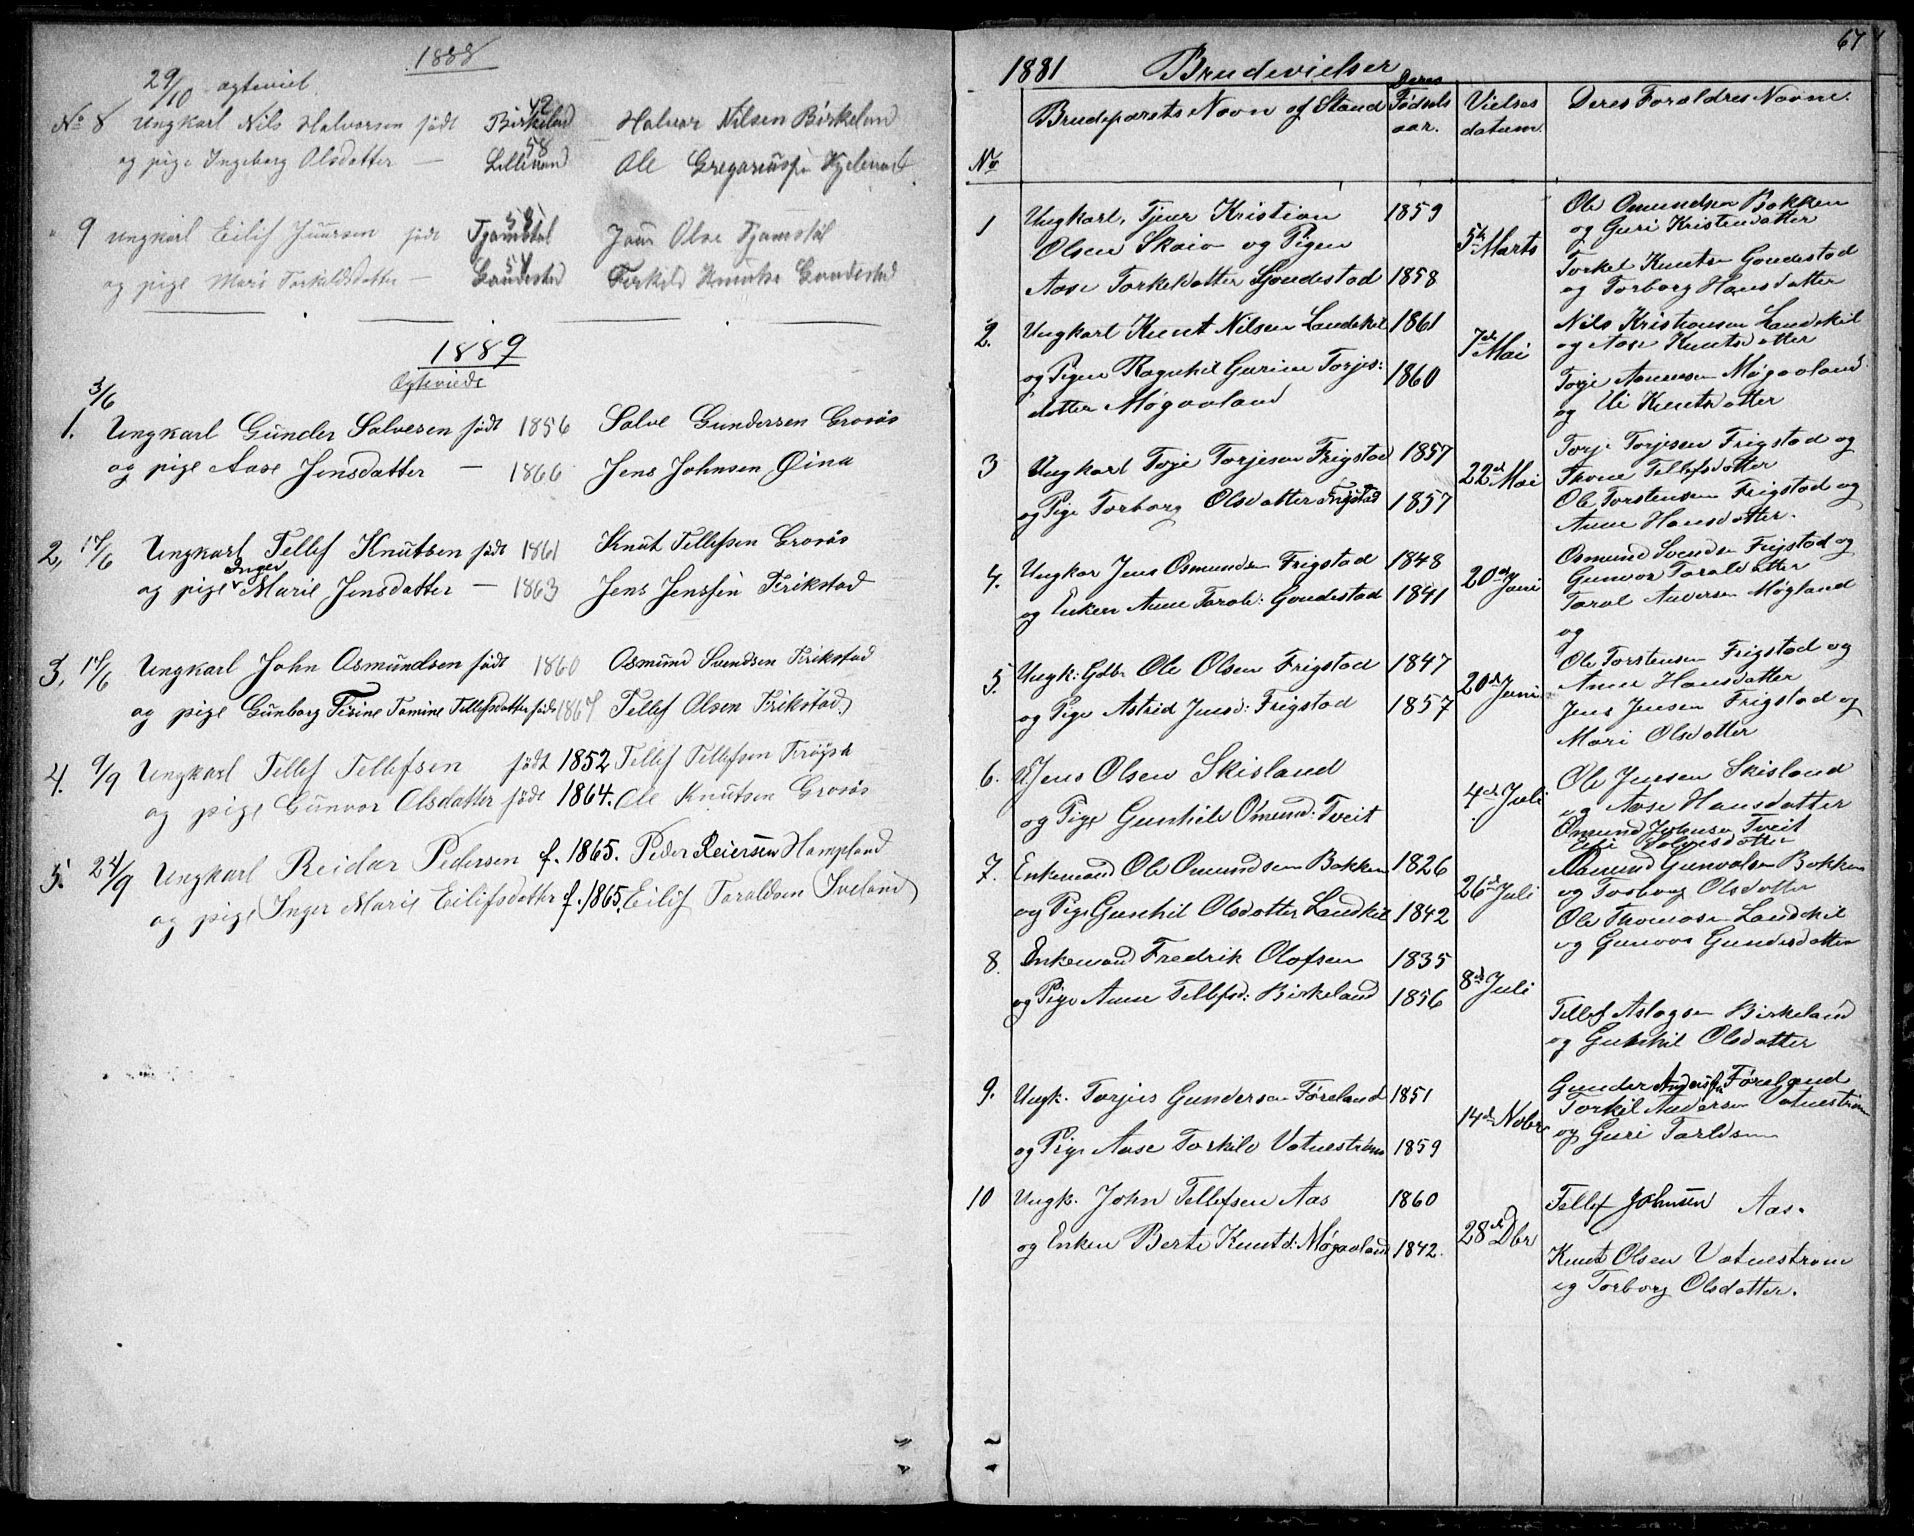 1888
29/10 ægteviet
No 8 Ungkarl Nils Halvorsen født Birkeland 42 Halvor Nilsen Birkeland
og pige Ingeborg Olsdatter — Lillesand 58 Ole
" 9 Ungkarl Eilif født 58
og pige Torkildsdatter — 54
1889
Ægteviede
3/6
1. Ungkarl Gunder Salvesen født 1856 Salve Gundersen Grosås
og pige Aase Jensdatter — 1866 Jens Johnsen Øina
2, 17/6 Ungkarl Tellef Knutsen født 1861 Knut Tellefsen Grosås
og pige Inger Marie Jensdatter — 1863 Jens Jenssen Frikstad
3, 17/6 Ungkarl John Osmundsen født 1860 Osmund Svendsen Frikstad
og pige Gunborg Tomine Tellefsdatter født 1867 Tellef Olsen Frikstad
4. 9/9 Ungkarl Tellef Tellefsen født 1852 Tellef Tellefsen
og pige Gunvor Olsdatter født 1864. Ole Knutsen Grosås
5. 24/9 Ungkarl Reidar Pedersen f. 1865. Peder Reiersen
og pige Inger Marie Eilifsdatter f. 1865. Eilif Taraldsen Iveland
67
1881 Brudevielser
No Brudeparets Navn og Stand Deres Fødsels aar. Vielses datum. Deres Forældres Navne.
1 Ungkarl, Tjener Kristian 1859 Ole Omundsen Bakken
Olsen Skaio og Pigen 5te Marts og Guri Kristensdatter
Aase Torkeldatter Goudestad 1858 Torkel Knutsen Goudestad
og Torborg Hansdatter
2. Ungkarl Knut Nilsen Landskil 1861 Nils Kristiansen Landskil
7de Mai og Aase Knutsdatter
og Pigen Ragnhil Gurine Torjes: 1860 Torje Aanensen Møgaaland
datter Møgaaland og Knutsdatter
3 Ungkarl Torje Torjesen Frigstad 1857 Torje Torjesen Frigstad og
22de Mai Thone Tellefsdatter
og Pige Torborg Olsdatter Frigstad 1857 Ole Torstensen Frigstad og
Anne Hansdatter.
4. Ungkar Jens Osmundsen Frigstad 1848 Osmund Svendsen Frigstad og
20de Juni Gunvor Taraldsdatter
og Enken Anne Tarals: Goudestad 1841 Taral Andersen Møgland
og
5. Ungk: Gdbr Ole Olsen Frigstad 1847 Ole Torstensen Frigstad og
20de Juni Anne Hansdatter
og Pige Astrid Jensd: Frigstad 1857 Jens Jensen Frigstad og
Mari Olsdatter
6. U Jens Olsen Skisland Ole Jensen Skisland
4de Juli og Aase Hansdatter
og Pige Gunhild Omund: Tveit Omund Johnsen Tveit
7. Enkemand Ole Omundsen Bakken 1826 Omund Gunvalsen Bakken
26de Juli og Torborg Olsdatter
og Pige Gunhil Olsdatter Landskil 1842 Ole Thomasen Landskil
og Gunvor Gundersdatter
8. Enkemand Fredrik Olofsen 1835
8de Juli
og Pige Anne Tellefsd: Birkeland 1856 Tellef Aslagsen Birkeland
og Gunhil Olsdatter
9. Ungk. Torjus Gundersen Føreland 1851 Gunder Andersen Føreland
14de Novbr Torkil Andersen Vatnestrøm
og Pige Aase Torkild Vatnestrøm 1859 og Guri
10 Ungk. John Tellefsen Aas 1860 Tellef Johnsen Aas.
28de Dbr
og Enken Berte Knutsd: Møgaaland 1842. Knut Olsen Vatnestrøm
og Torborg Olsdatter.